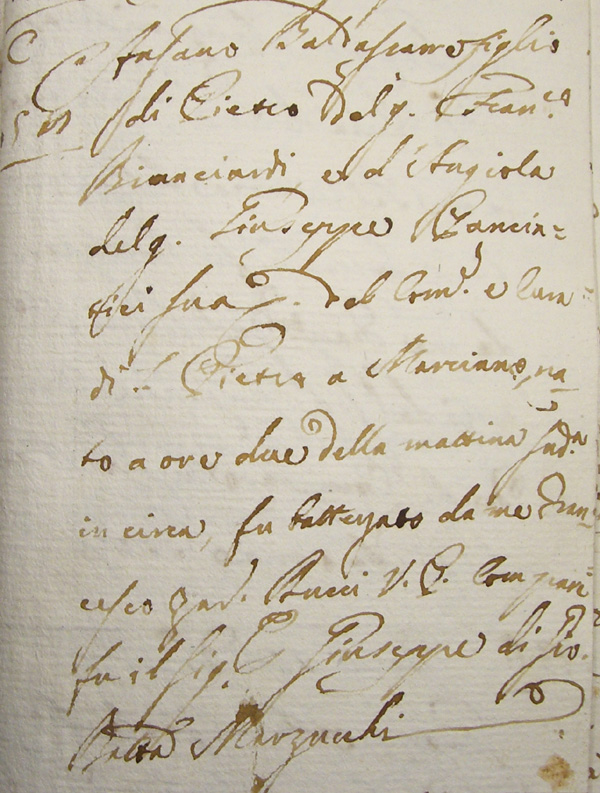 Stefano Baldassarre figlio
di Pietro del q. Fran.co
Bianciardi, e d'Angiola
del q. Giuseppe Pancin=
tici sua C. del Com.e e Cura
di S. Pietro a Marciano, na
to a ore due della mattina sud.a
in circa, fu battezzato da me Fran=
cesco Gad. Bucci V. C. Compare
fu il Sig. Giuseppe di Gio.
Batta Marzucchi